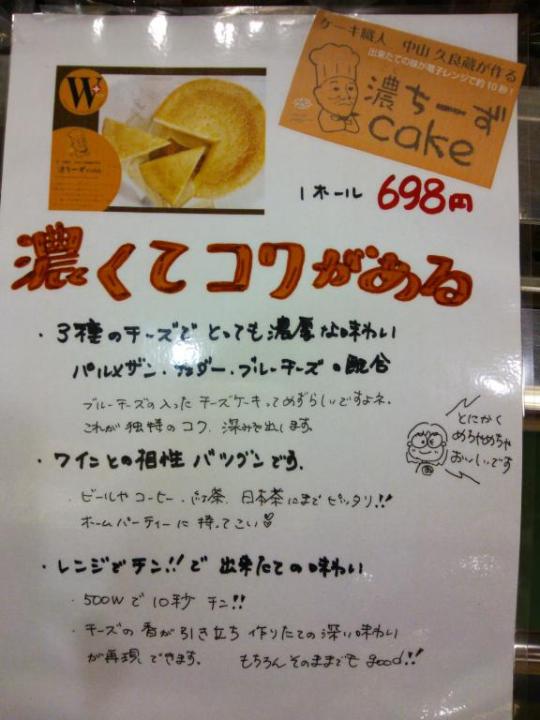 W
ケーキ職人 中山 久良蔵が作る
出来たての味が電子レンジで約10秒!
濃ちーず
cake
1ホール 698円
濃くてコクがある
・3種のチーズで とっても濃厚な味わい
パルメザン・チェダー・ブルーチーズの配合
ブルーチーズの入ったチーズケーキってめずらしいですよネ.
これが独特のコク、深みを出します
とにかく
めちゃめちゃ
おいしいです
・ワインとの相性 バツグンです.
・ビールや コーヒー・紅茶、日本茶にまで ピッタリ!!
ホームパーティーに 持ってこい♡
・レンジで チン!!で 出来たての味わい
・500Wで10秒 チン!!
・チーズの香が引き立ち 作りたての深い味わい
が再現できます. もちろんそのままでも good!!